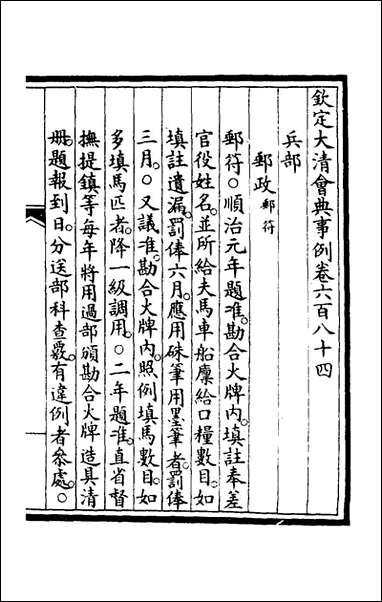 欽定大清會典事例卷六百八十四
兵部
郵政郵符
郵符〇順治元年題准。勘合火牌內。填註奉差
官役姓名。並所給夫馬車船廩給口糧數目。如
填註遺漏。罰俸六月。應用硃筆用墨筆者。罰俸
三月。〇又議准。勘合火牌內。照例填馬數目。如
多填馬匹者。降一級調用。〇二年題准。直省督
撫提鎮等每年將用過部頒勘合火牌造具清
冊。題報到日。分送部科查覈。有違例者叅處。〇